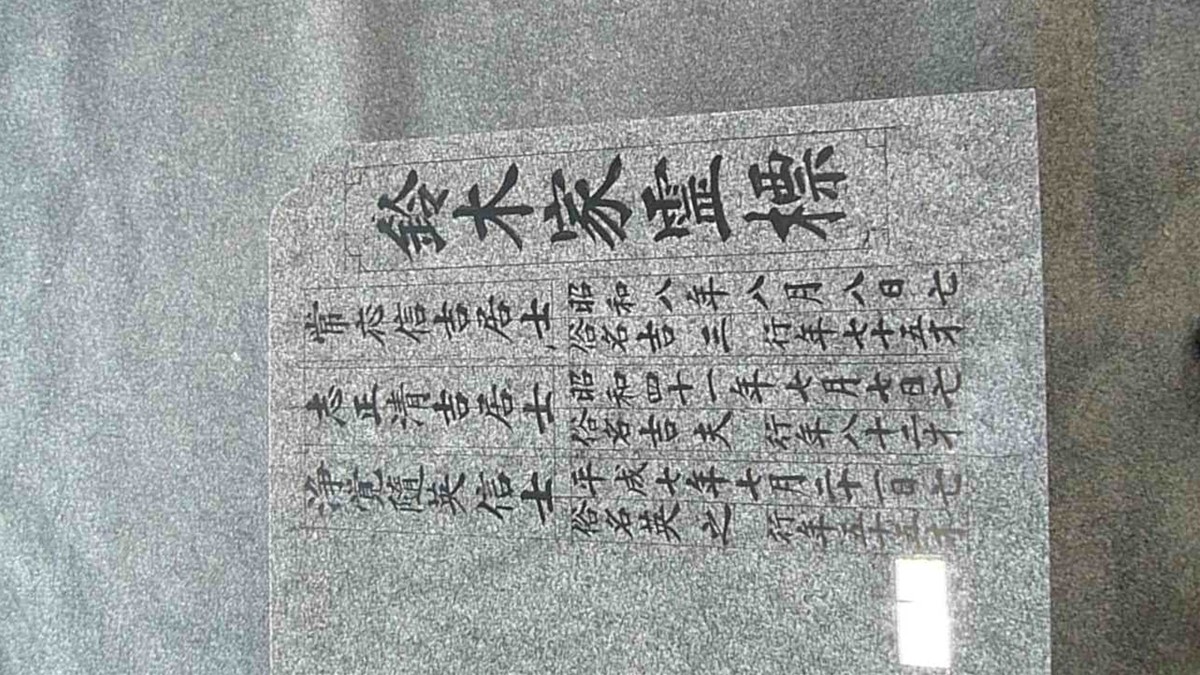 鈴木家霊標
常志信吉居士
昭和八年八月八日 七
俗名吉三 行年七十五才
志正清吉居士
昭和四十一年七月七日 七
俗名吉夫 行年八十二才
浄覚随英信士
平成七年七月二十一日 七
俗名英之 行年五十五才